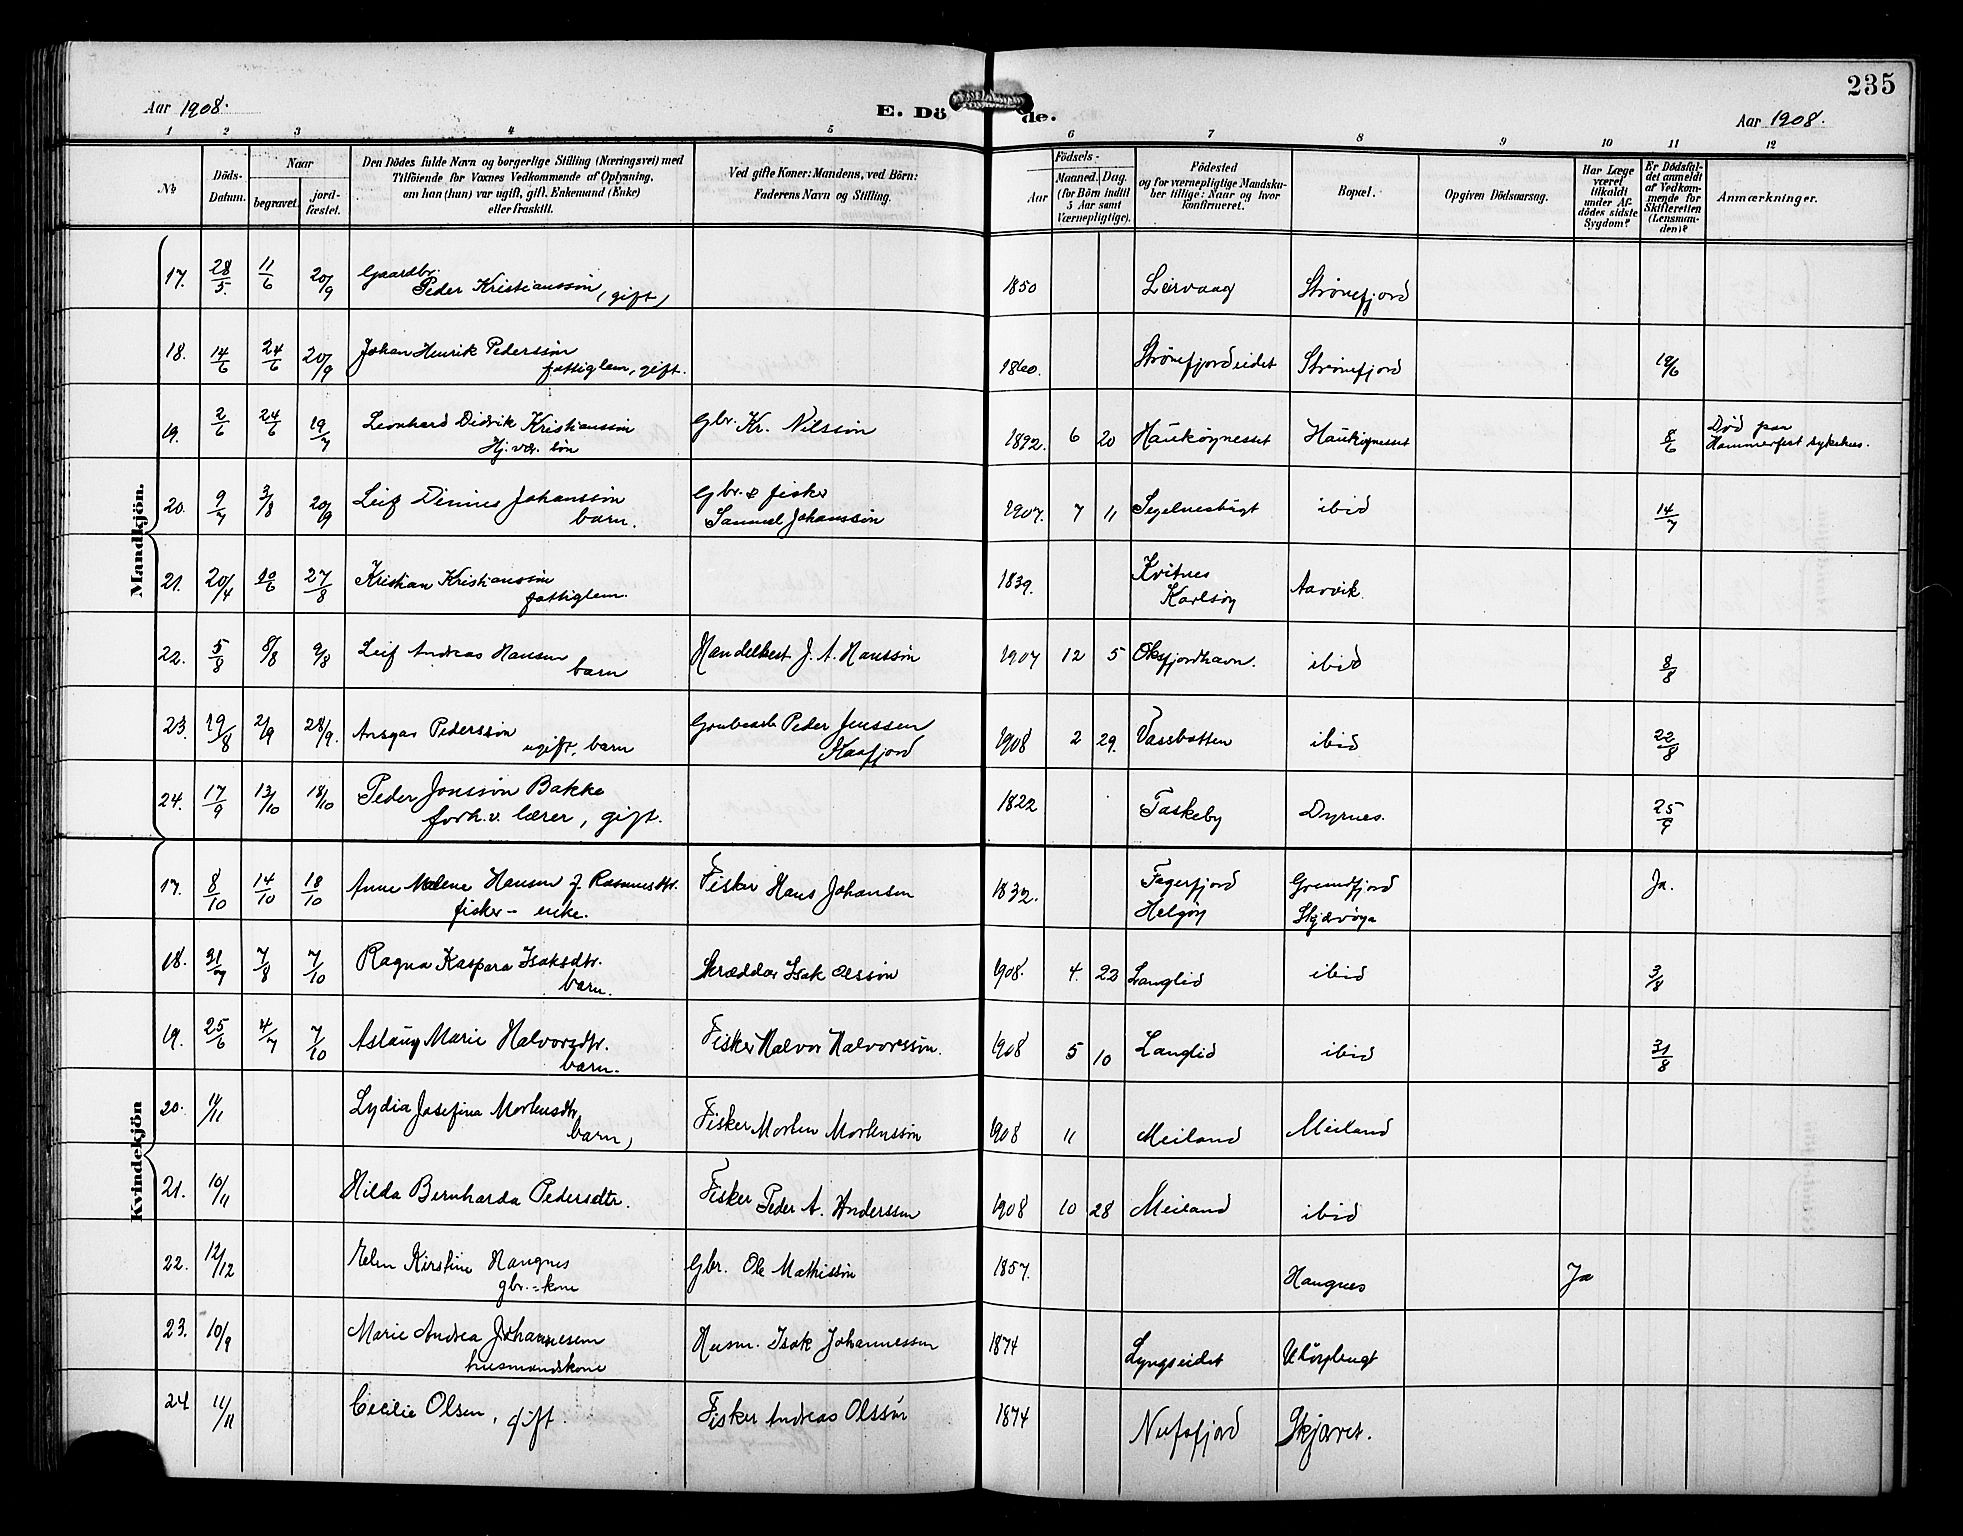 235
Aar 1908.
E. Döde.
Aar 1908.
1 2 3 4 5 6 7 8 9 10 11 12
No
Döds-Datum.
Naar
begravet.
jordfæstet.
Den Dödes fulde Navn og borgerlige Stilling (Næringsvei) med
Tilföiende for Voxnes Vedkommende af Oplysning,
om han (hun) var ugift, gift, Enkemand (Enke)
eller fraskilt.
Ved gifte Koner: Mandens, ved Börn:
Faderens Navn og Stilling.
Födsels-
Aar
Maaned. Dag.
(for Börn indtil
5 Aar samt
Værnepligtige).
Födested
og for værnepligtige Mandskaber tillige: Naar og hvor
konfirmeret.
Bopæl.
Opgiven Dödsaarsag.
Har Læge
været
tilkaldt
under Afdödes sidste
Sygdom?
Er Dödsfaldet anmeldt
af Vedkommende for
Skifteretten
(Lensmanden)?
Anmærkninger.
Mandkjön.
17. 28/5. 11/6 20/9 Gaardbr. Peder Kristianssön, gift, 1850 Lervaag Strømefjord
18. 14/6 24/6 20/9 Johan Henrik Pederssön fattiglem, gift. 1860. Strømefjordeidet Strømefjord 19/6
19. 2/6 24/6 19/7 Leonhard Didrik Kristianssön Hj.vær. sön Gbr. Kr. Nilssön 1892. 6 20 Haukøynesset Haukøynesset 8/6 Død paa Hammerfest sykehus.
20. 9/7 3/8 20/9 Leif Dinnes Johanssön barn. Gbr. & fisker Samuel Johanssön 1907. 7 11 Segelnesbugt ibid 14/7
21. 20/4 10/6 27/8 Kristian Kristianssön fattiglem. 1839. Kvitnes Karlsöy Aarvik.
22. 5/8 8/8 9/8 Leif Andreas Hansen barn Handelbest J. A. Hanssön 1907 12 5 Oksfjordhavn. ibid 8/8
23. 19/8 2/9 28/9. Ansgar Pederssön ugift, barn Grubearb Peder Jenssen Kaafjord 1908 2 29. Vassbotten ibid 22/8
24. 17/9 13/10 18/10 Peder Jonssön Bakke forh.v. lærer, gift. 1822 Taskeby Dyrnes. 25/9
Kvindekjön
17. 8/10 14/10 18/10 Anne Malene Hansen f. Rasmusdtr. fisker- enke. Fisker Hans Johansen 1832. Fagerfjord Helgøy Grundfjord Skjævöya Ja.
18. 31/7 7/8 7/10 Ragna Kaspara Isaksdtr. barn. Skrædder Isak Olssön 1908. 4. 22 Langlid ibid 3/8
19. 25/6 4/7 7/10 Aslaug Marie Halvorsdtr. barn. Fisker Halvor Halvorssön. 1908 5 10 Langlid ibid 31/8
20. 11/11 Lydia Josefina Mortensdtr barn, Fisker Morten Mortenssön 1908 11 Meiland Meiland
21. 10/11 Hilda Bernharda Pedersdtr. Fisker Peder A. Anderssen 1908 10 28 Meiland ibid
22. 12/12 Elen Kirstine Hangnes gbr.=kone Gbr. Ole Mathissön 1857. Hangnes Ja
23. 10/9 Marie Andrea Johannesen husmandskone Husm. Isak Johannessen 1874 Lyngseidet Uløybugt
24 11/11 Cecilie Olsen, gift. Fisker Andreas Olssön 1874 Nufsfjord Skjæret.